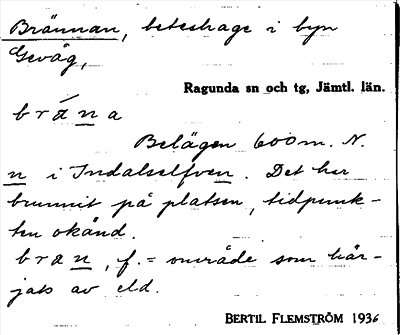 Brännan, beteshage i byn
Gevåg,
Ragunda sn och tg, Jämtl. län.
brána
Belägen 600 m. N.
n i Indalselfven. Det har
brunnit på platsen, tidpunk-
ten okänd.
bran, f. = område som här-
jats av eld.
BERTIL FLEMSTRÖM 1936